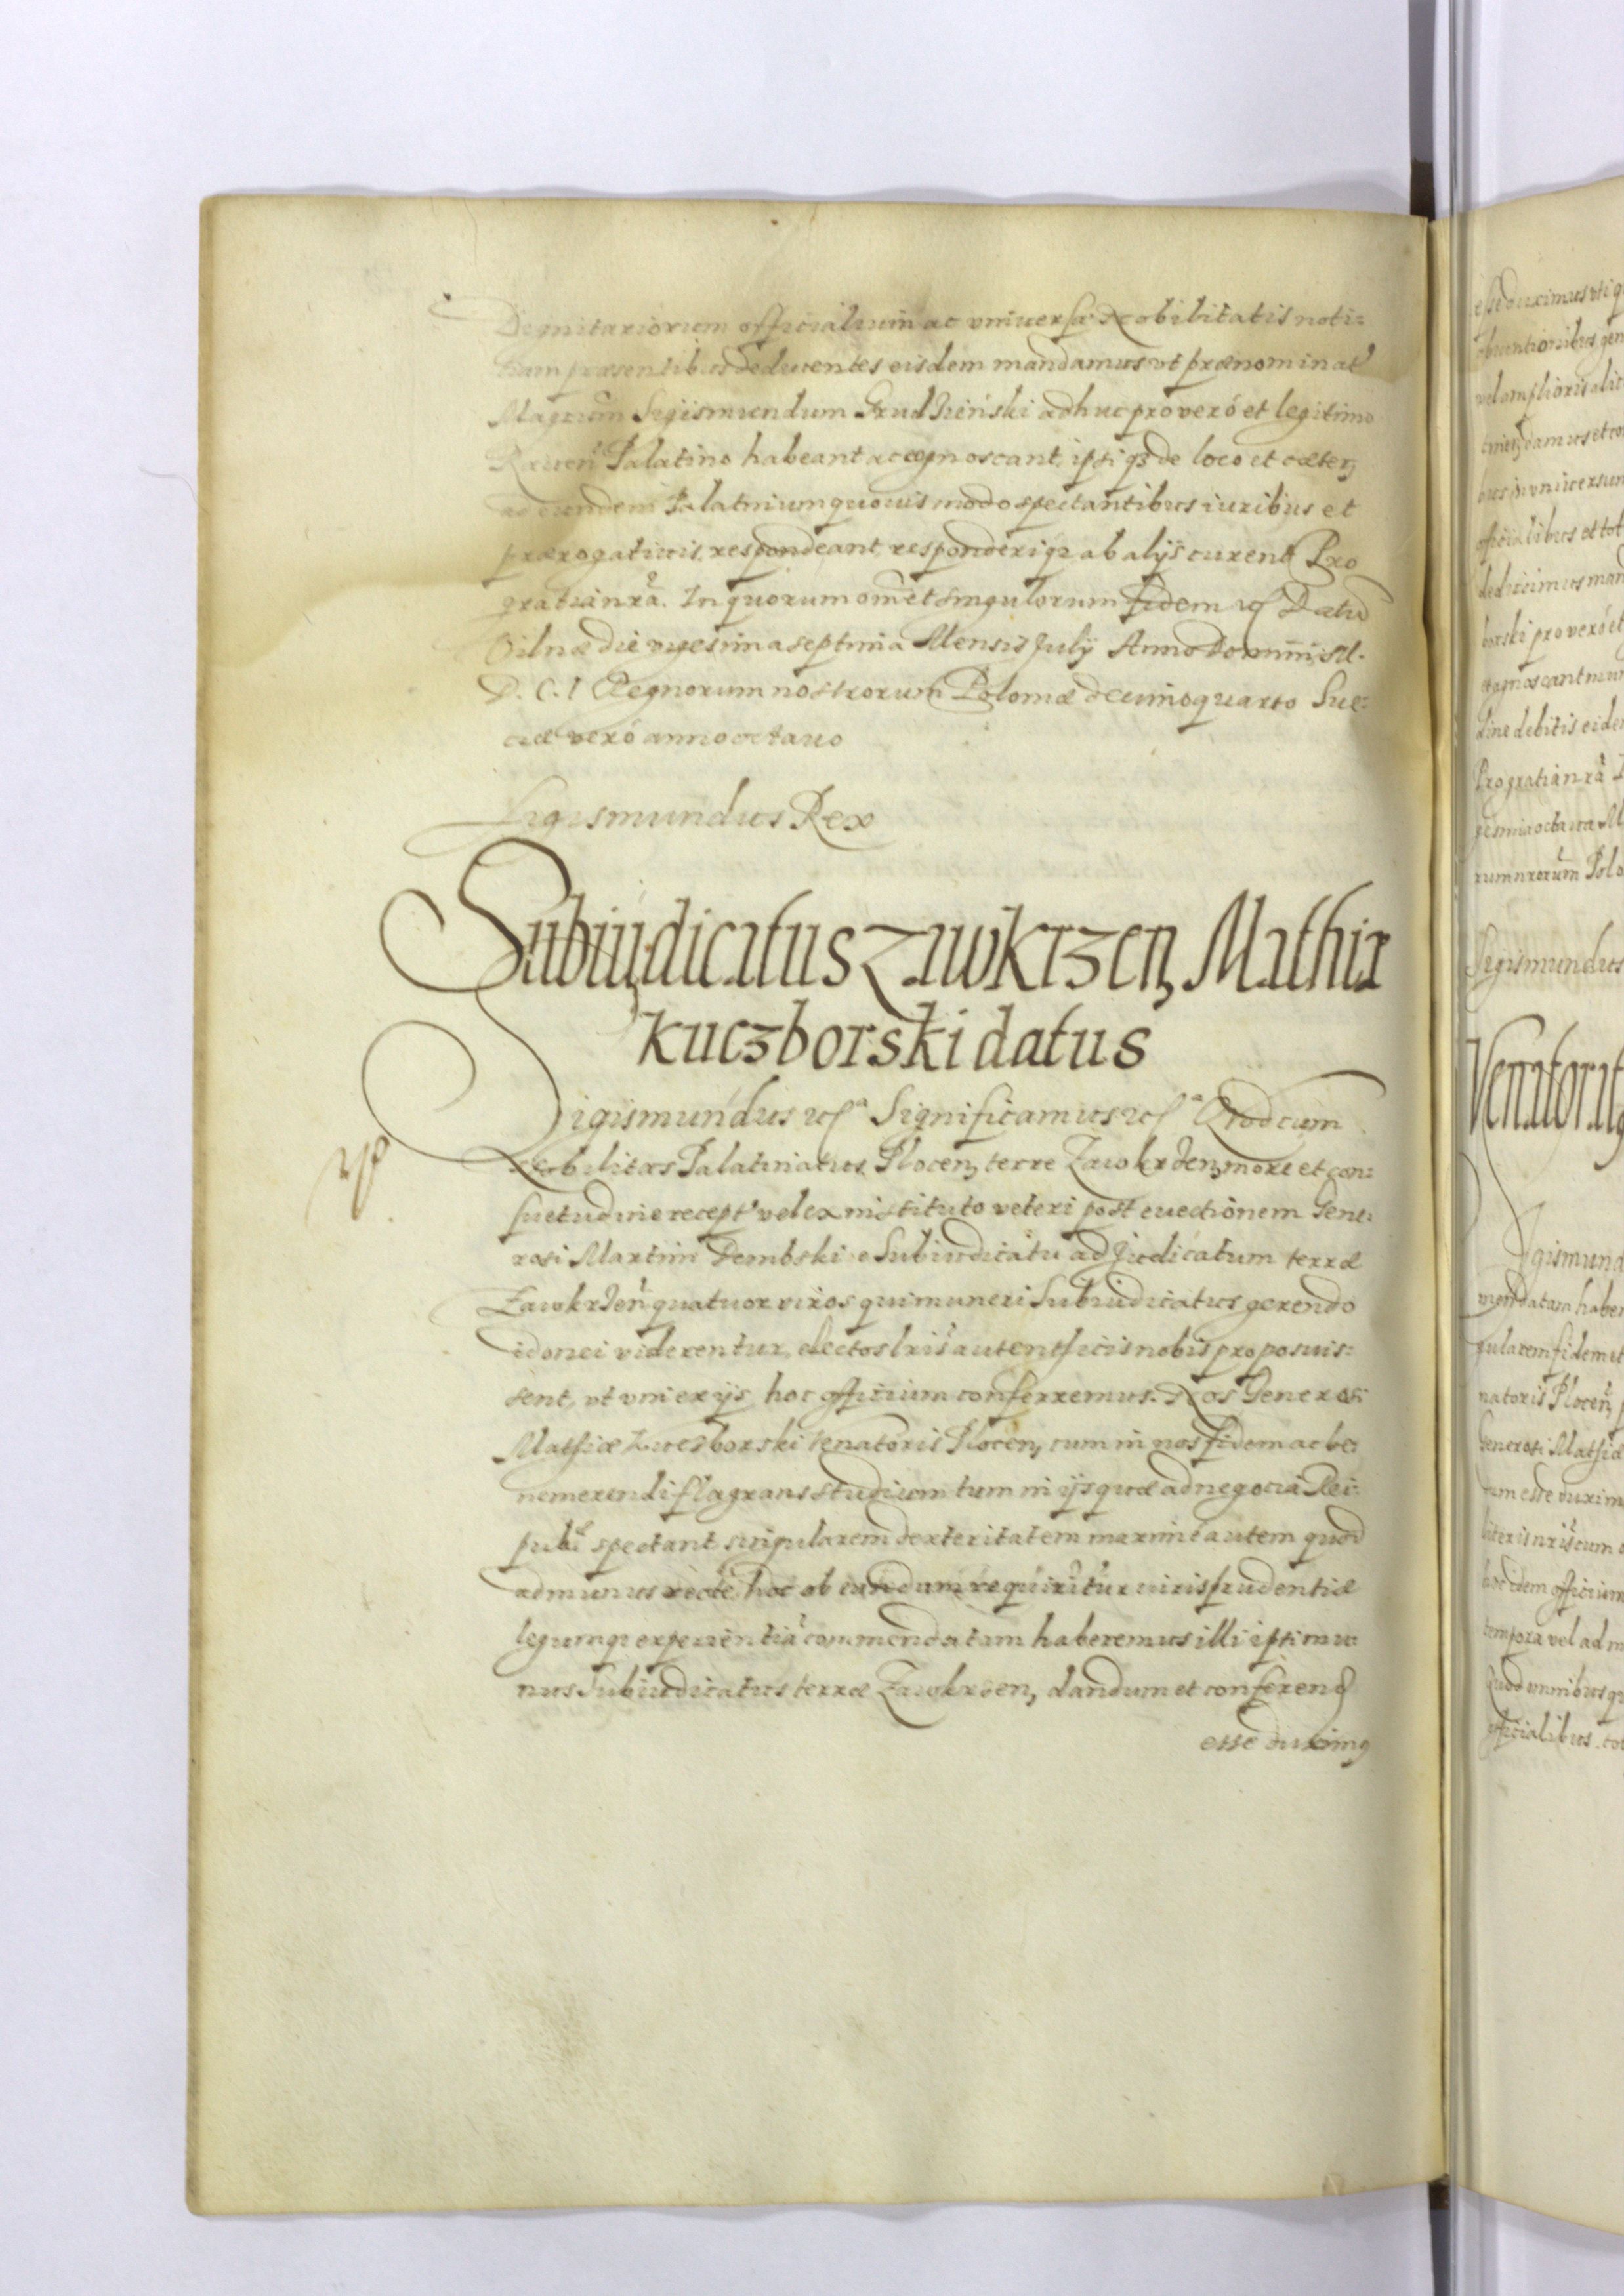 Dignitariorum officialium ac vniuersæ Nobilitatis noti:
tiam præsentibus deducentes eisdem mandamus vt prænominat
Magcum Sigismundum Grudzieński adhuc pro veró et legitimo
Rauen Palatino habeant ac cognoscant, ipsiq3 de loco et cæterz
ad eundem Palatinum quouis modo spectantibus iuribus et
prærogatiuis respondeant responderiq3 ab alijs curent Pro
gratia nra. In quorum om et singulorum fidem etc Datu
Vilnæ die vigesima septima Mensis July Anno Domini M.
D. C. I Regnorum nostrorum Poloniæ decimo quarto Sue:
ciæ veró anno octauo
Sigismundus Rex
Subiudicatus Zawkrzen, Mathiæ
Kuczborski datus
Sigismundus etc Significamus etc Quod cum
Nobilitas Palatinatus Plocen, terre Zawkrzen, more et con:
suetudine recept vel ex instituto veteri post euectionem Gene:
rosi Martini Dembski e Subiudicatu ad Judicatum terræ
Zawkrzen quatuor viros qui muneri Subiudicatus gerendo
idonei viderentur, electos lris autenthicis nobis proposuis:
sent, vt vni ex ijs hoc officium conferremus. Nos Generosi
Mathiæ Kuczborski Venatoris Plocen, cum in nos fidem ac be:
nemerendi flagrans studium tum in ijs quæ ad negocia Rei:
publ spectant singularem dexteritatem maximé autem quod
ad munus recté hoc obeundum requiritur iurisprudentiæ
legumq3 experientia commendatam haberemus illi ipsi mu:
nus Subiudicatus terræ Zawkrzen, dandum et conferend
esse duximq